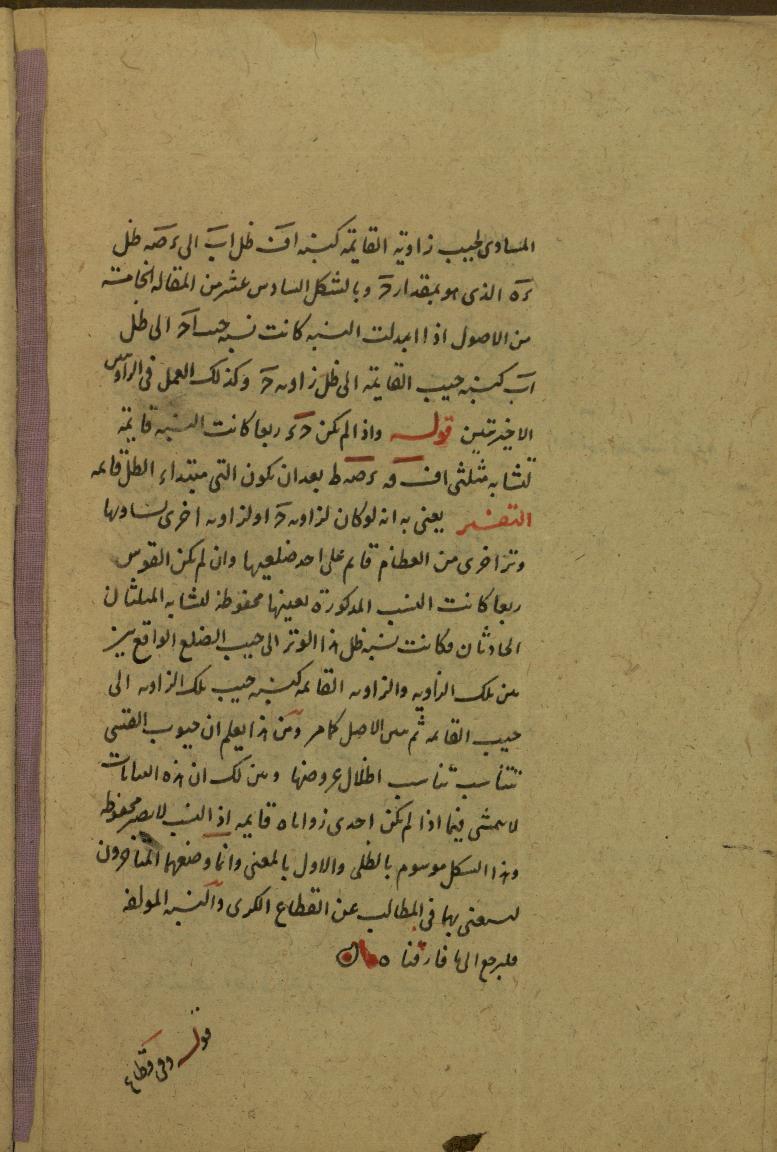 المساوى لجيب زاوية القايمة كنسبة اف ظل اب الى ءصه ظل
ءه الذى هو بمقدار حَ وبالشكل السادس عشر من المقاله الخامسة
من الاصول اذا ابدلت النسبة كانت نسبة جيب احَ الى ظل
اب كنسبة جيب القايمة الى ظل زاويه حَ وكذلك العمل فى الزاويتين
الاخيرتين قوله واذا لم يكن حء ربعا كانت النسبة قايمة
لتشابه مثلثى اف ءصه ط بعد ان يكون التى مبتداء الظل قايمه
التفسير يعنى به انه لو كان لزاويه حَ او لزاويه اخرى تساويها
وتر اخرى من العظام قايم على احد ضلعيها وان لم يكن القوس
ربعا كانت النسب المذكورة بعينها محفوظة لتشابه المثلثان
الحادثان وكانت نسبة ظل هذا الوتر الى جيب الضلع الواقع بين
بين تلك الزاويه والزاويه القايمه كنسبة جيب تلك الزاويه الى
جيب القايمه ثم من الاصل كما مر ومن هذا يعلم ان جيوب القسى
تتناسب تناسب اظلال عروضها وبين لك ان هذه البيانات
لا يتمشى فيما اذا لم يكن احدى زواياه قايمه اذ النسب لا يصير محفوظه
وهذا الشكل موسوم بالظلى والاول بالمغنى وانما وضعهما المتأخرون
ليستغنى بهما فى المطالب عن القطاع الكرى والنسبه المولفه
فليرجع الى ما فارقنا ه
قوله وفى قطاع